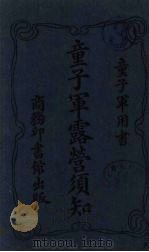 童子軍用書
童子軍露營須知
商務印書館出版
mtoou.info